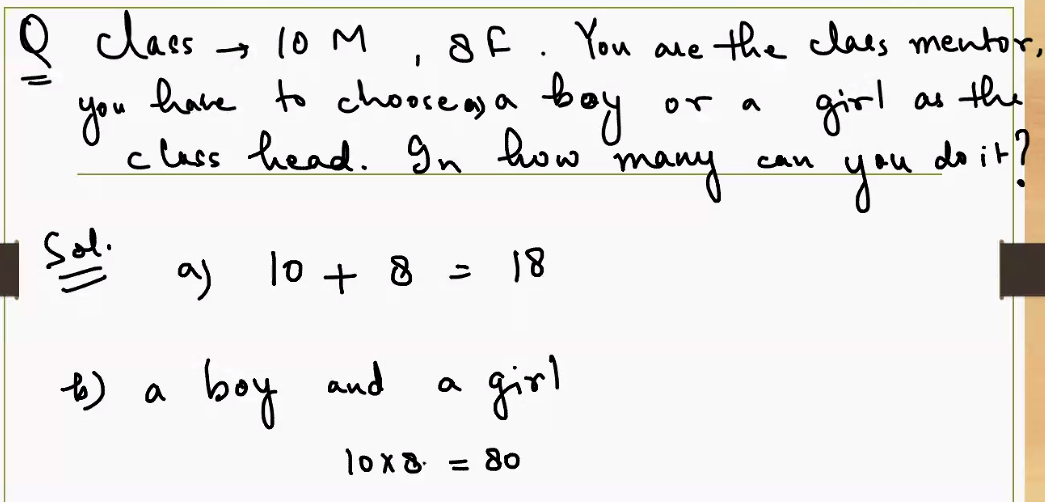 Q class → 10 M , 8 F . You are the class mentor,
you have to choose a) a boy or a girl as the
class head. In how many can you do it?
Sol. a) 10 + 8 = 18
b) a boy and a girl
10 x 8 = 80